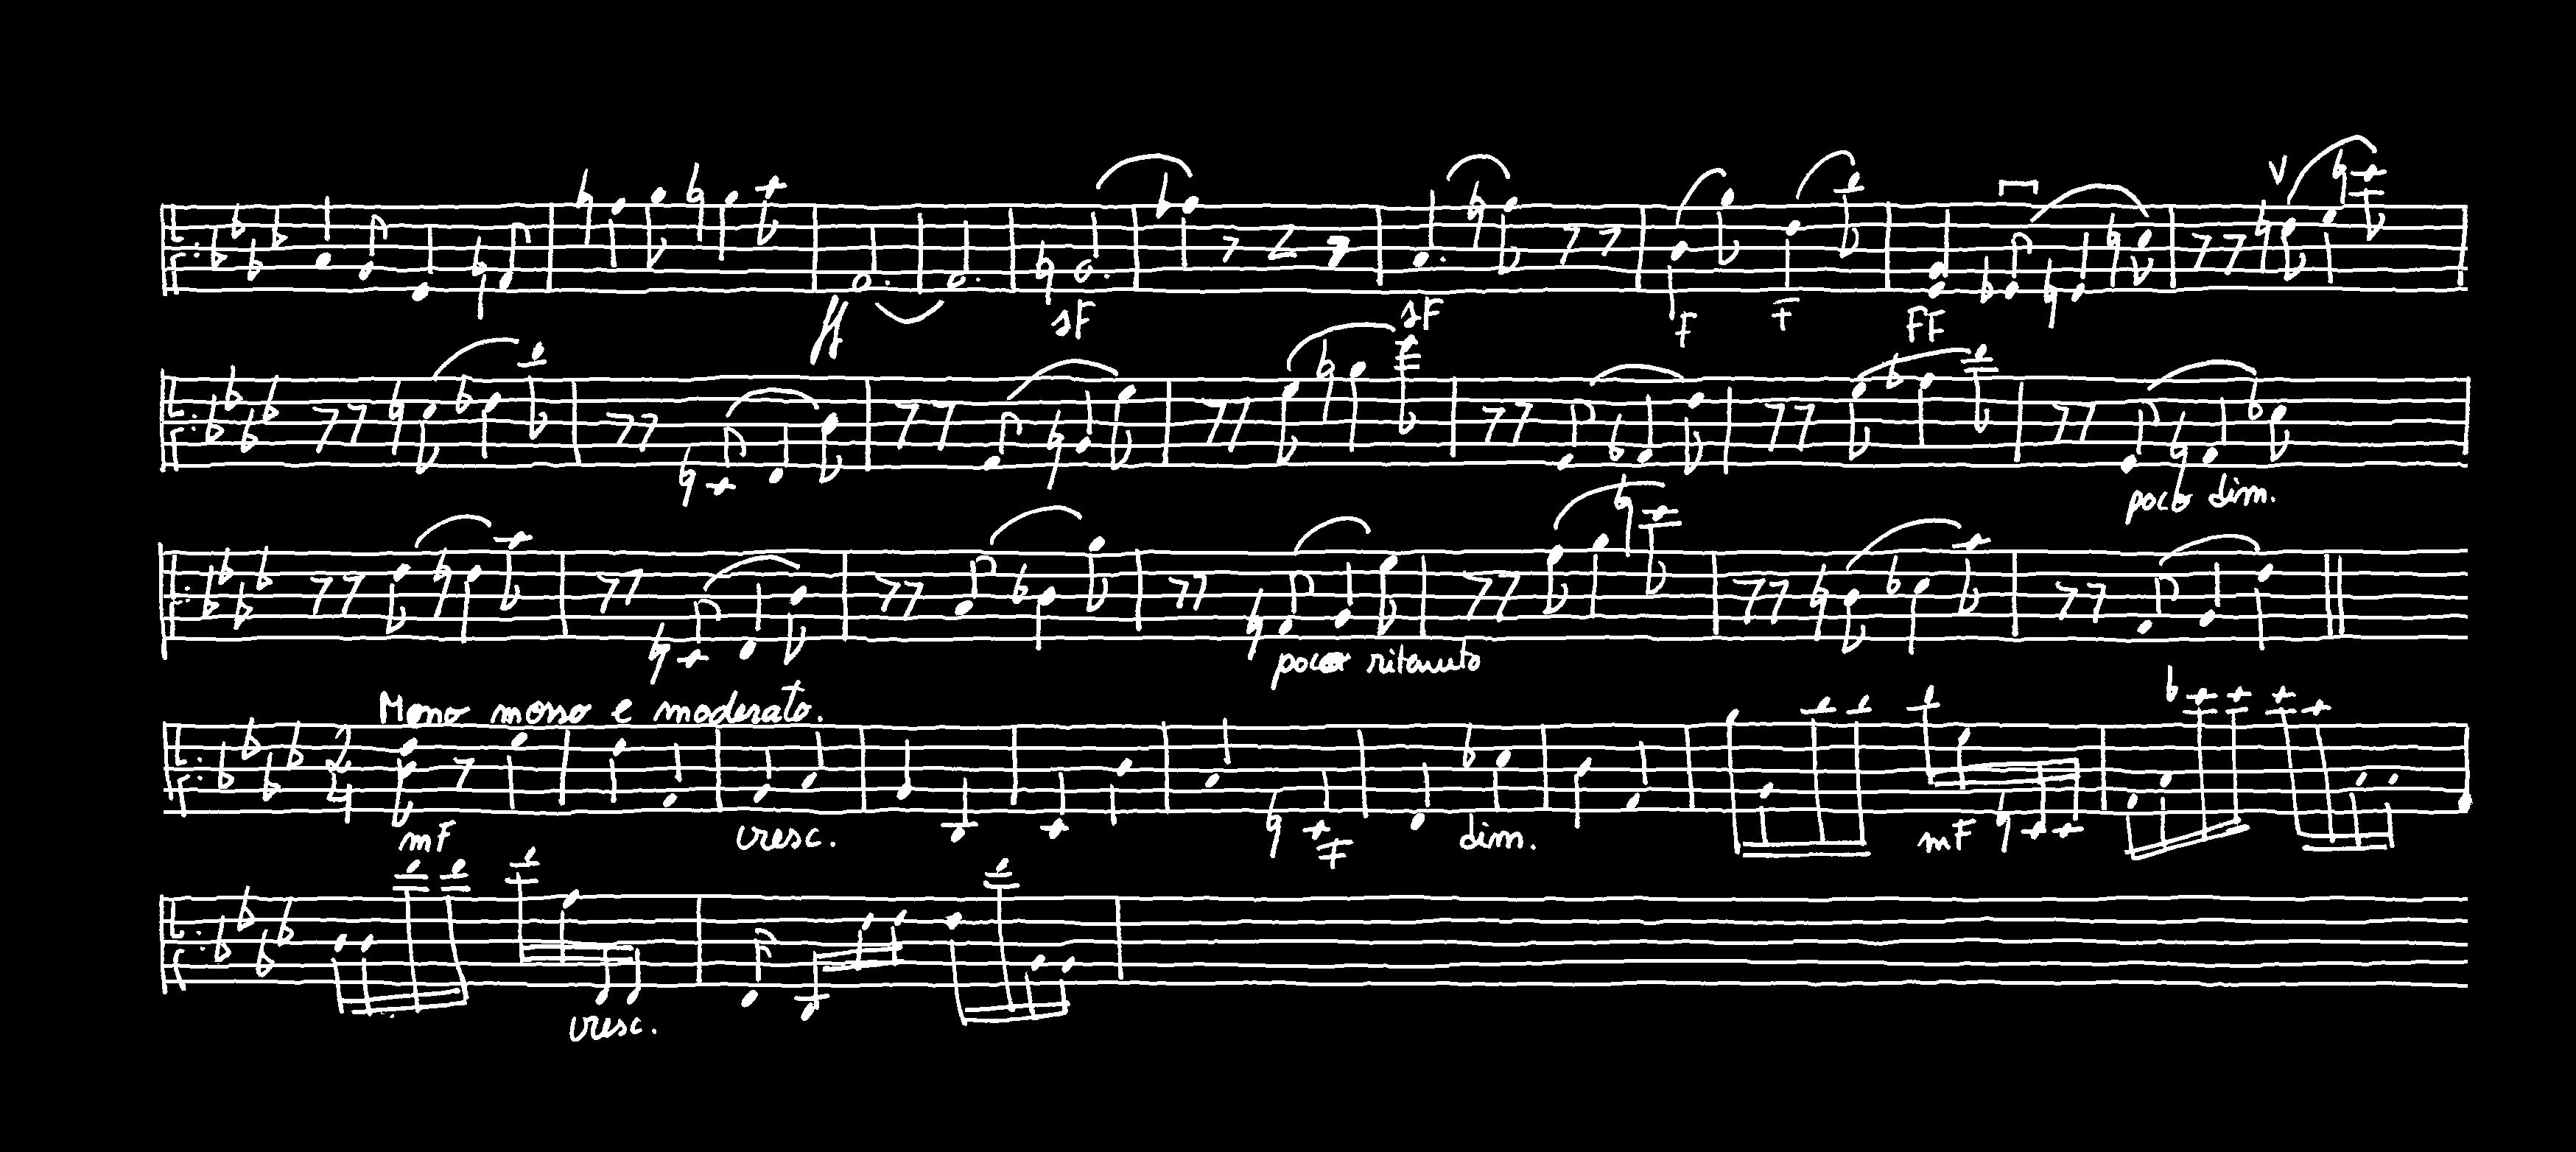 V
ff sF sF F F FF
poco dim.
poco ritenuto
Meno mosso e moderato.
2
4
mF cresc. F dim. mF
cresc.